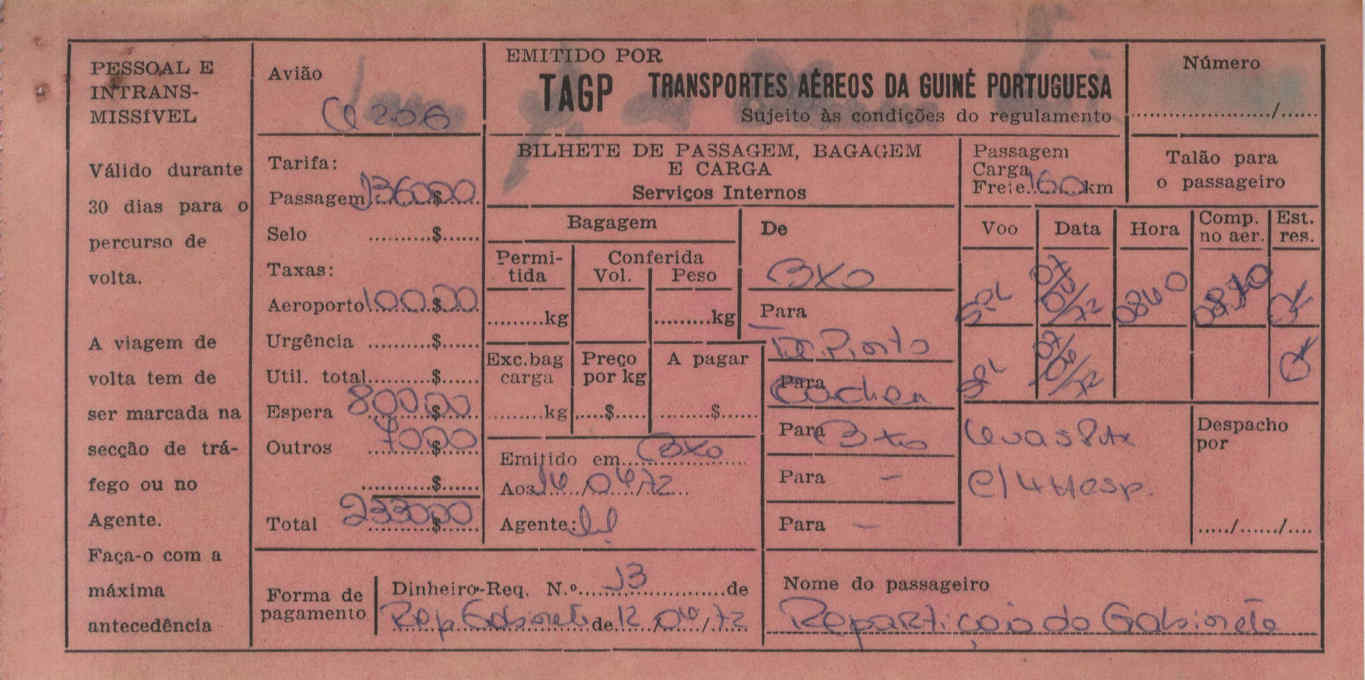 PESSOAL E
INTRANS-
MISSÍVEL
Válido durante
30 dias para o
percurso de
volta.
A viagem de
volta tem de
ser marcada na
secção de trá-
fego ou no
Agente.
Faça-o com a
máxima
antecedência
Avião
206
Tarifa:
Passagem 1360$00
Selo ..........$......
Taxas:
Aeroporto 100$00
Urgência ..........$......
Util. total ..........$......
Espera 800$00
Outros 70$00
..........$......
Total 2330$00
EMITIDO POR
TAGP TRANSPORTES AÉREOS DA GUINÉ PORTUGUESA
Sujeito às condições do regulamento
Número
....................../......
BILHETE DE PASSAGEM, BAGAGEM
E CARGA
Serviços Internos
Passagem
Carga
Frete 160 km
Talão para
o passageiro
Bagagem
Permi-
tida
Conferida
Vol. Peso
.........kg .........kg
Exc.bag
carga
Preço
por kg
A pagar
.........kg .....$..... .........$.....
Emitido em BXO
Aos 14/04/72
Agente:
De
BXO
Para
Para
Cacheu
Para BXO
Para -
Para -
Voo Data Hora Comp.
no aer. Est.
res.
SPL 07/72 0840 OK
SPL 07/72 OK
c/ 4H esp.
Despacho
por
...../....../....
Forma de
pagamento
Dinheiro-Req. N.º 13 de
Rep Gabinete de 12/04/72
Nome do passageiro
Repartição do Gabinete